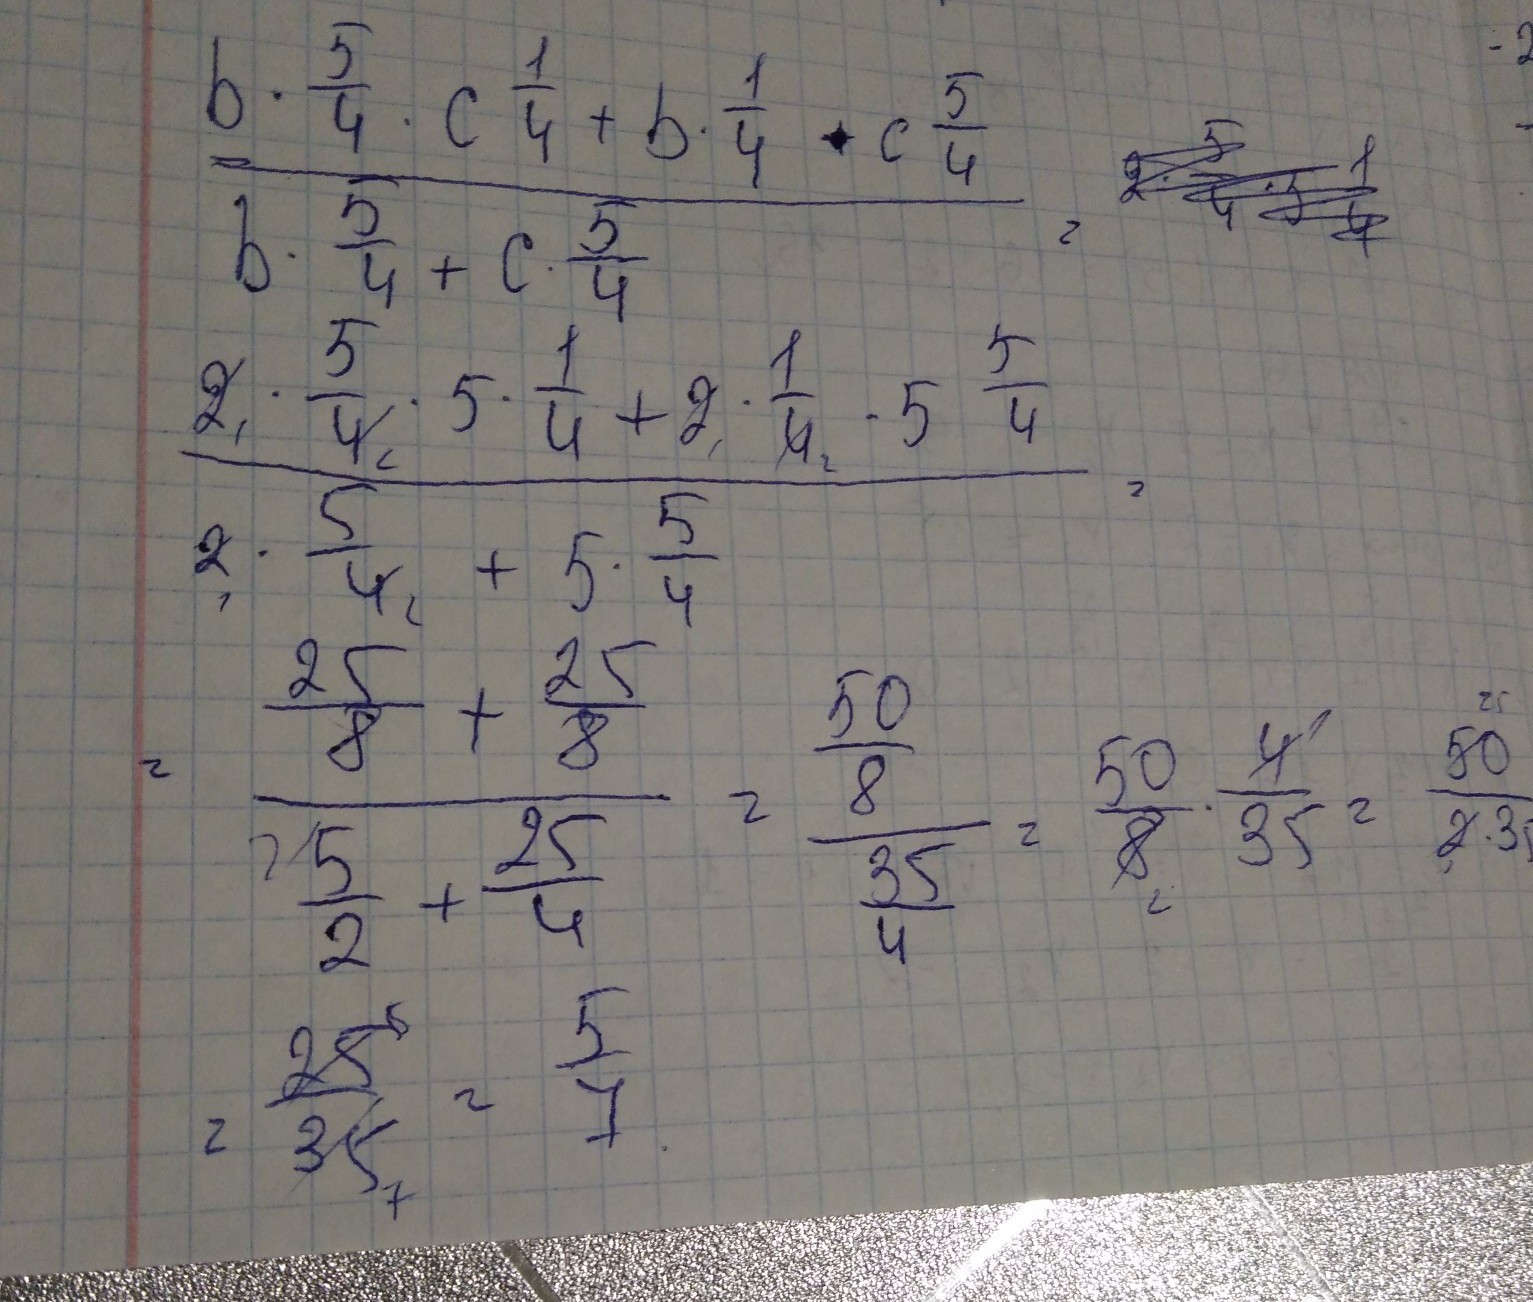 b · 5/4 · c 1/4 + b · 1/4 · c 5/4
b · 5/4 + c · 5/4 =
2 · 5/4 · 5 · 1/4 + 2 · 1/4 · 5 5/4
2 · 5/4 + 5 · 5/4 =
= 25/8 + 25/8
5/2 + 25/4 = 50/8 / 35/4 = 50/8 · 4/35 = 50/2·35
= 25/35 = 5/7